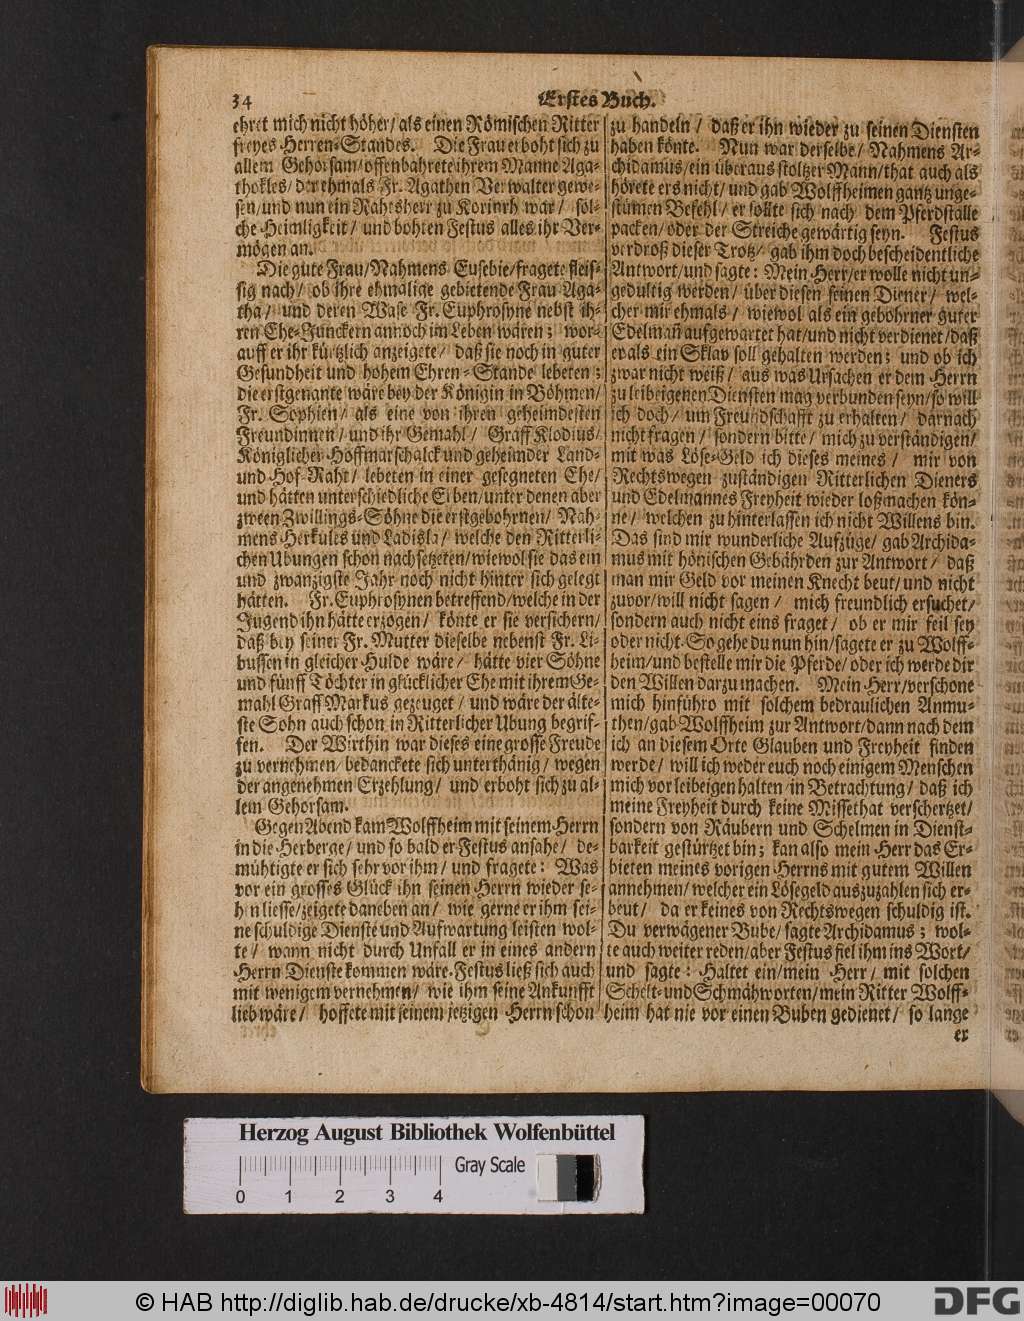 34
Erstes Buch.
ehret mich nicht höher/ als einen Römischen Ritter
freyes Herren-Standes. Die Frau erboht sich zu
allem Gehorsam/ offenbahrete ihrem Manne Aga-
thokles/ der ehmals Fr. Agathen Verwalter gewe-
sen/ und nun ein Rahtsherr zu Korinth war/ sol-
che Heimligkeit/ und bohten Festus alles ihr Ver-
mögen an.
Die gute Frau/ Nahmens Eusebie/ fragete fleis-
sig nach/ ob ihre ehmalige gebietende Frau Aga-
tha/ und deren Wase Fr. Euphrosyne nebst ih-
ren Ehe-Junckern annoch im Leben wären; wor-
auff er ihr kürtzlich anzeigete/ daß sie noch in guter
Gesundheit und hohem Ehren-Stande lebeten;
die erstgenante wäre bey der Königin in Böhmen/
Fr. Sophien/ als eine von ihren geheimdesten
Freundinnen/ und ihr Gemahl/ Graff Klodius/
Königlicher Hoffmarschalck und geheimder Land-
und Hof-Raht/ lebeten in einer gesegneten Ehe/
und hätten unterschiedliche Erben/ unter denen aber
zween Zwillings-Söhne die erstgebohrnen/ Nah-
mens Herkules und Ladisla/ welche den Ritterli-
chen Ubungen schon nachsetzeten/ wiewol sie das ein
und zwanzigste Jahr noch nicht hinter sich gelegt
hätten. Fr. Euphrosynen betreffend/ welche in der
Jugend ihn hätte erzogen/ könte er sie versichern/
daß bey seiner Fr. Mutter dieselbe nebenst Fr. Li-
bussen in gleicher Hulde wäre/ hätte vier Söhne
und fünff Töchter in glücklicher Ehe mit ihrem Ge-
mahl Graff Markus gezeuget/ und wäre der älte-
ste Sohn auch schon in Ritterlicher Ubung begrif-
fen. Der Wirthin war dieses eine grosse Freude
zu vernehmen/ bedanckete sich unterthänig/ wegen
der angenehmen Erzehlung/ und erboht sich zu al-
lem Gehorsam.
Gegen Abend kam Wolffheim mit seinem Herrn
in die Herberge/ und so bald er Festus ansahe/ de-
mühtigte er sich sehr vor ihm/ und fragete: Was
vor ein grosses Glück ihn seinen Herrn wieder se-
hen liesse/ zeigete daneben an/ wie gerne er ihm sei-
ne schuldige Dienste und Aufwartung leisten wol-
te/ wann nicht durch Unfall er in eines andern
Herrn Dienste kommen wäre. Festus ließ sich auch
mit wenigem vernehmen/ wie ihm seine Ankunfft
lieb wäre/ hoffete mit seinem jetzigen Herrn schon
zu handeln/ daß er ihn wieder zu seinen Diensten
haben könte. Nun war derselbe/ Nahmens Ar-
chidamus/ ein überaus stoltzer Mann/ that auch als
hörete ers nicht/ und gab Wolffheimen gantz unge-
stümen Befehl/ er sollte sich nach dem Pferdstalle
packen/ oder der Streiche gewärtig seyn. Festus
verdroß dieser Trotz/ gab ihm doch bescheidentliche
Antwort/ und sagte: Mein Herr/ er wolle nicht un-
gedultig werden/ über diesen seinen Diener/ wel-
cher mir ehmals/ wiewol als ein gebohrner guter
Edelmañ aufgewartet hat/ und nicht verdienet/ daß
er als ein Sklav soll gehalten werden; und ob ich
zwar nicht weiß/ aus was Ursachen er dem Herrn
zu leibeigenen Diensten mag verbunden seyn/ so will
ich doch/ um Freundschafft zu erhalten/ darnach
nicht fragen/ sondern bitte/ mich zu verständigen/
mit was Löse-Geld ich dieses meines/ mir von
Rechtswegen zuständigen Ritterlichen Dieners
und Edelmannes Freyheit wieder loßmachen kön-
ne/ welchen zu hinterlassen ich nicht Willens bin.
Das sind mir wunderliche Aufzüge/ gab Archida-
mus mit hönischen Gebährden zur Antwort/ daß
man mir Geld vor meinen Knecht beut/ und nicht
zuvor/ will nicht sagen/ mich freundlich ersuchet/
sondern auch nicht eins fraget/ ob er mir feil sey
oder nicht. So gehe du nun hin/ sagete er zu Wolff-
heim/ und bestelle mir die Pferde/ oder ich werde dir
den Willen darzu machen. Mein Herr/ verschone
mich hinführo mit solchem bedraulichen Anmu-
then/ gab Wolffheim zur Antwort/ dann nach dem
ich an diesem Orte Glauben und Freyheit finden
werde/ will ich weder euch noch einigem Menschen
mich vor leibeigen halten/ in Betrachtung/ daß ich
meine Freyheit durch keine Missethat verschertzet/
sondern von Räubern und Schelmen in Dienst-
barkeit gestürtzet bin; kan also mein Herr das Er-
bieten meines vorigen Herrns mit gutem Willen
annehmen/ welcher ein Lösegeld auszuzahlen sich er-
beut/ da er keines von Rechtswegen schuldig ist.
Du verwägener Bube/ sagte Archidamus; wol-
te auch weiter reden/ aber Festus fiel ihm ins Wort/
und sagte: Haltet ein/ mein Herr/ mit solchen
Schelt- und Schmähworten/ mein Ritter Wolff-
heim hat nie vor einen Buben gedienet/ so lange
er
Herzog August Bibliothek Wolfenbüttel
Gray Scale
0 1 2 3 4
© HAB http://diglib.hab.de/drucke/xb-4814/start.htm?image=00070
DFG